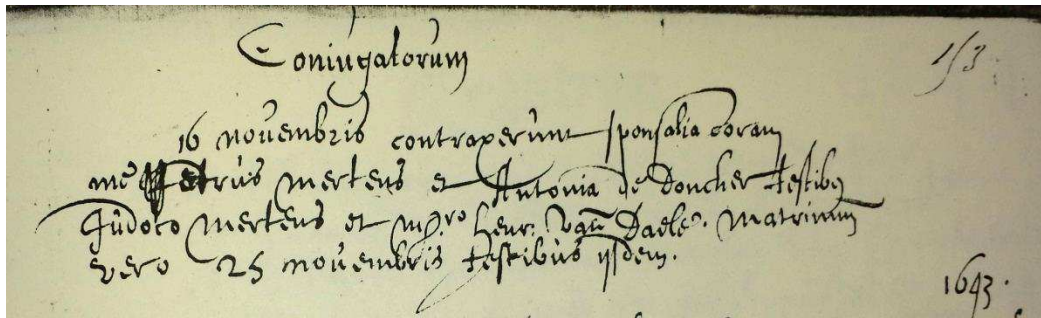 Coniugatorum
153
16 novembris contraxerunt sponsalia coram
me Petrus Mertens et Antonia de Doncher testibus
Judoco Mertens et mgro Henr. van Daele. Matrimm
vero 25 novembris testibus ijsdem.
1643.